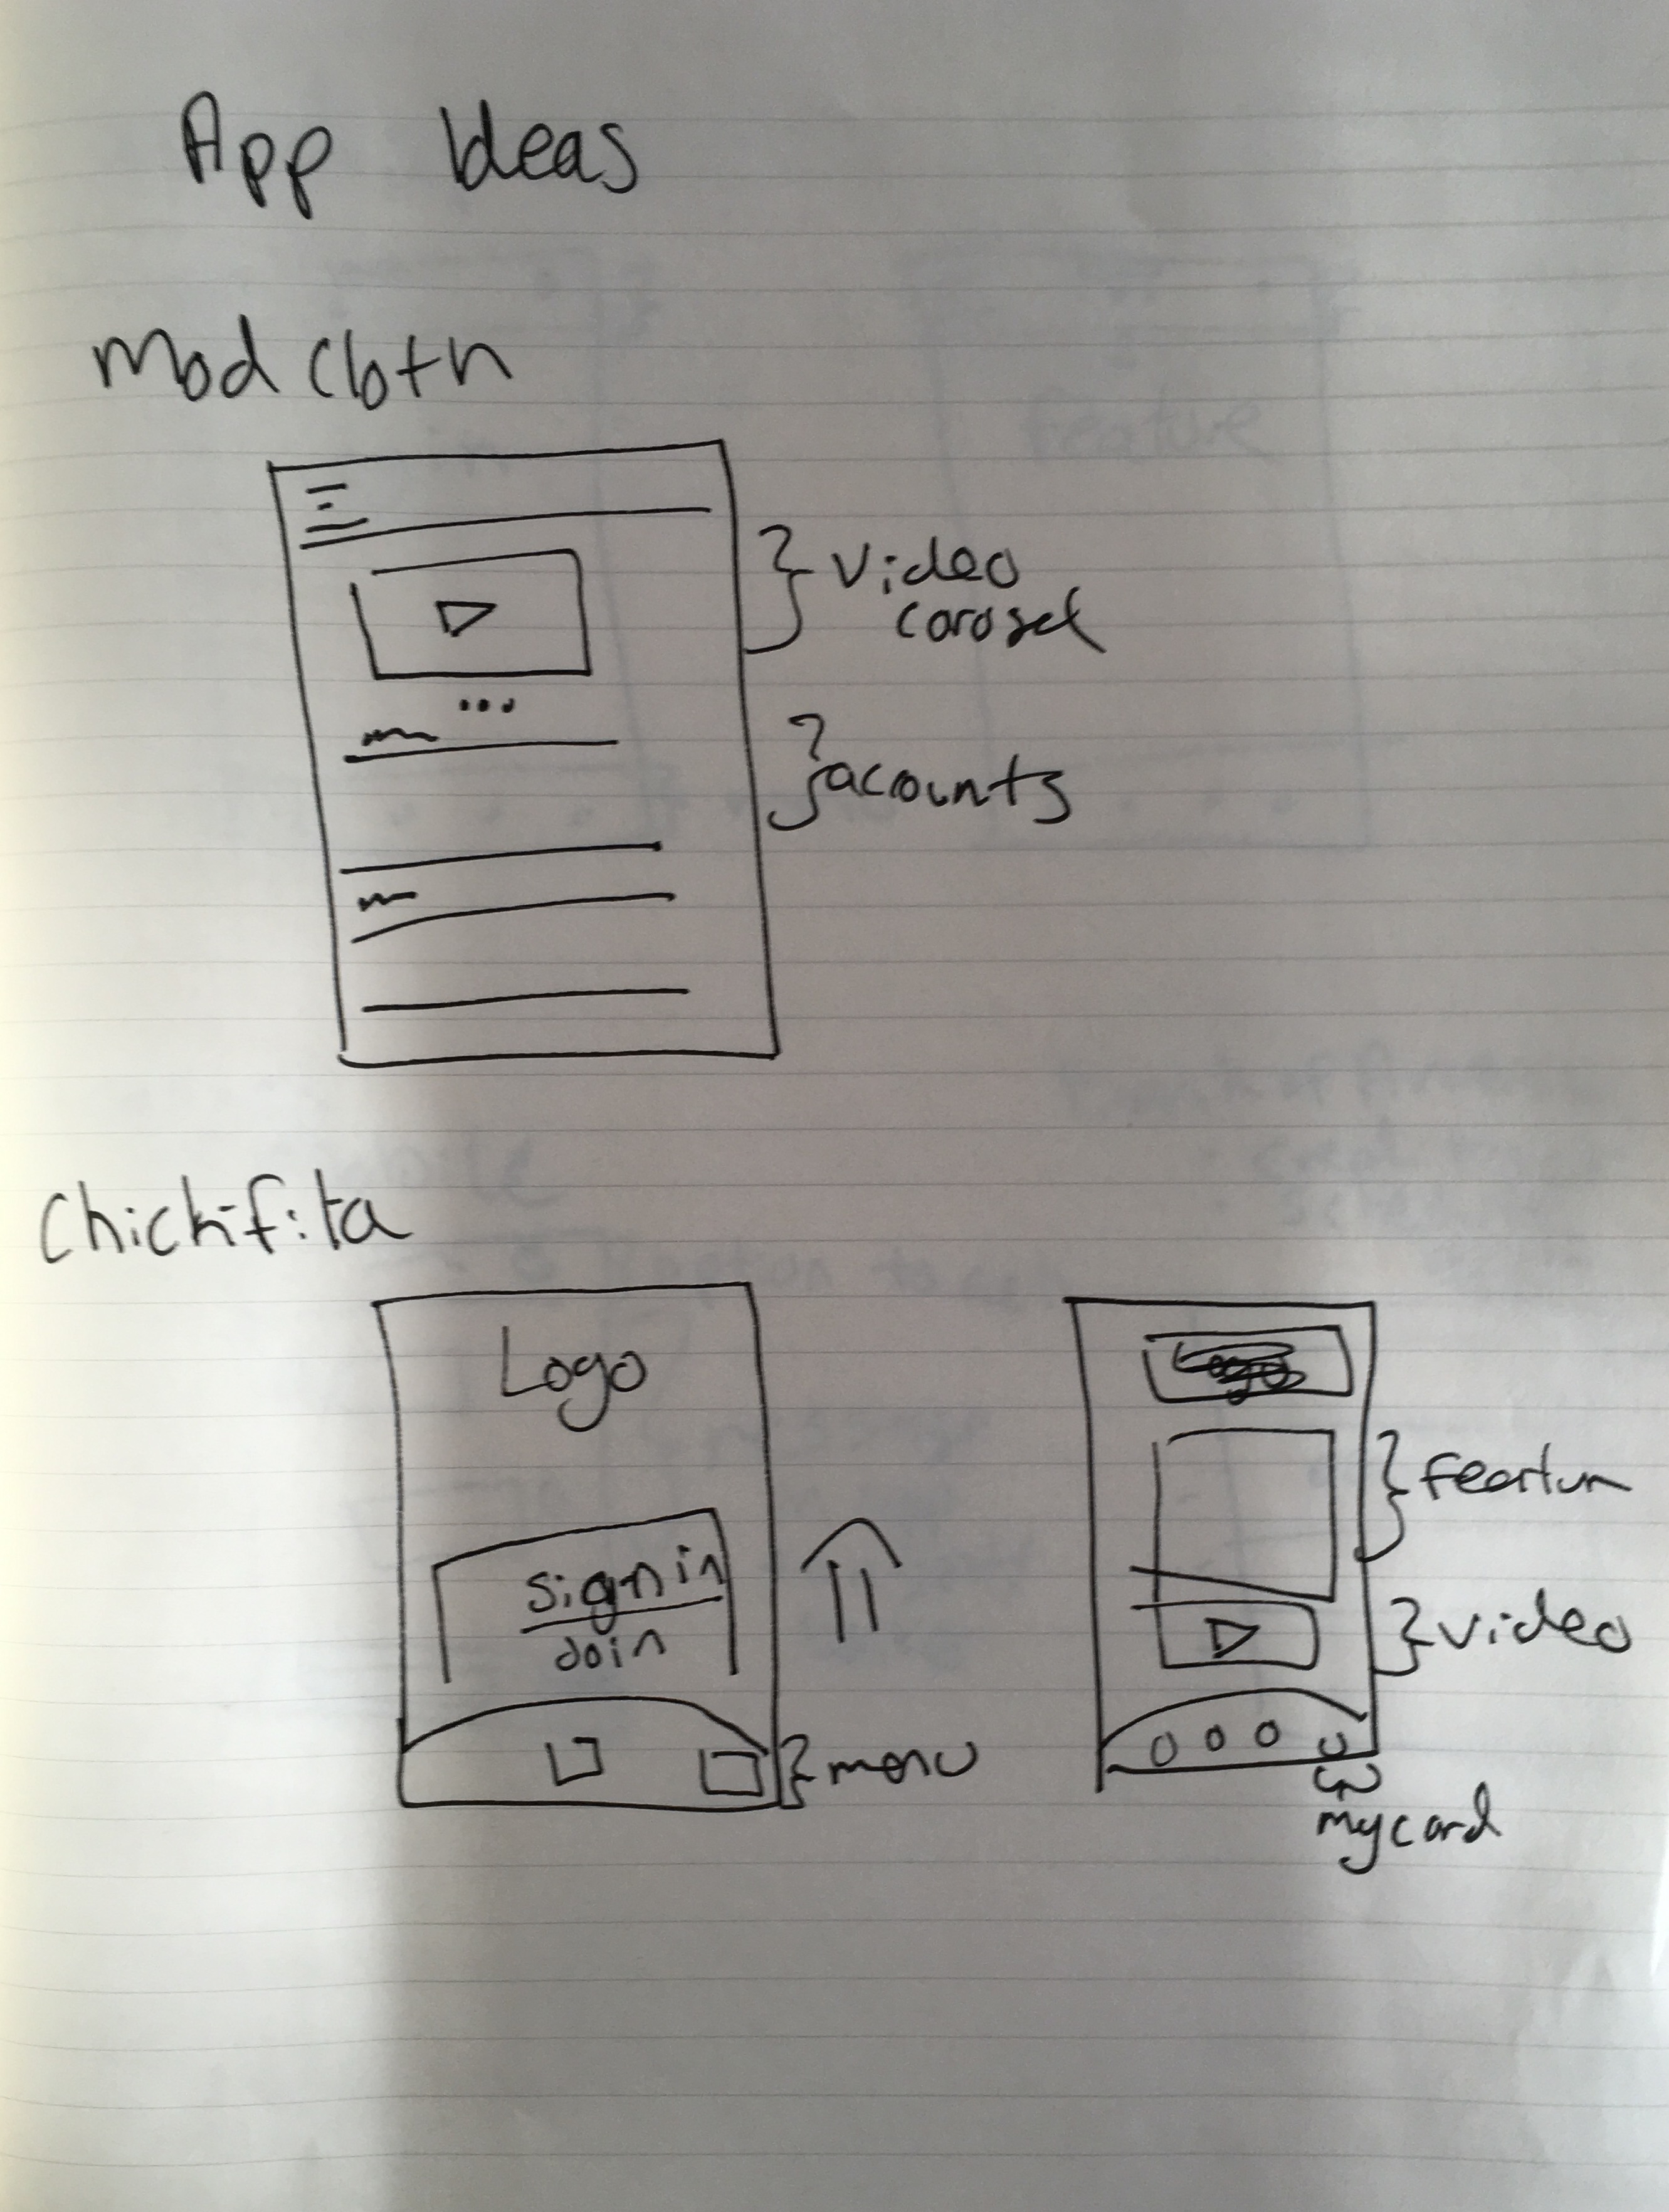 App Ideas
Mod Cloth
video
carosel
acounts
Chickfila
Logo
sign in
Join
menu
Logo
Featur
video
my card
Feature